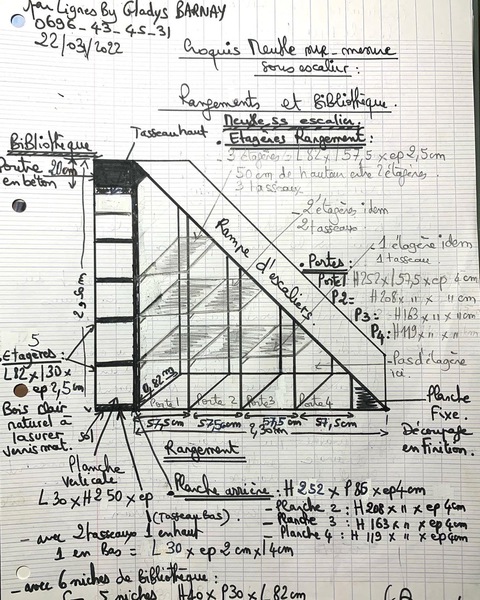 Lignes By Gladys BARNAY
0696-43-45-31
22/03/2022
Croquis Meuble sur-mesure
sous escalier:
Rangements et Bibliothèque.
Meuble ss escalier.
Tasseau haut
• Etagères Rangement:
Bibliothèque
3 étagères: L82 x 57,5 x ep 2,5cm
50 cm de hauteur entre 2 étagères.
3 tasseaux.
Poutre 20cm
en béton
2 étagères idem
2 tasseaux
Rampe d'escaliers.
1 élagère idem
1 tasseau.
• Portes:
Porte1 H252 x 57,5 x ep 4cm
P2= H208 x " x " cm
P3= H163 x " x " cm
P4: H119 x " x " cm
5
Etagères:
L82 x 130 x
ep 2,5cm
Pas d'étagère
ici.
Bois clair
naturel à
lasurer
vernis mat.
0,82m
Porte 1 Porte 2 Porte 3 Porte 4
57,5cm 57,5cm 57,5cm 57,5cm
2,30m
Planche
Fixe.
Découpage
en Finition.
Rangement
Planche
verticale
L30 x H250 x ep
• Planche arrière: H252 x P86 x ep 4cm
- Planche 2: H208 x " x ep 4cm
- Planche 3: H163 x " x ep 4cm
- Planche 4: H119 x " x ep 4cm
(Tasseau bas).
- avec 2 tasseaux 1 en haut
1 en Bas = L30 x ep 2cm x 14cm
- avec 6 niches de Bibliothèque:
5 niches H40 x P30 x L82cm